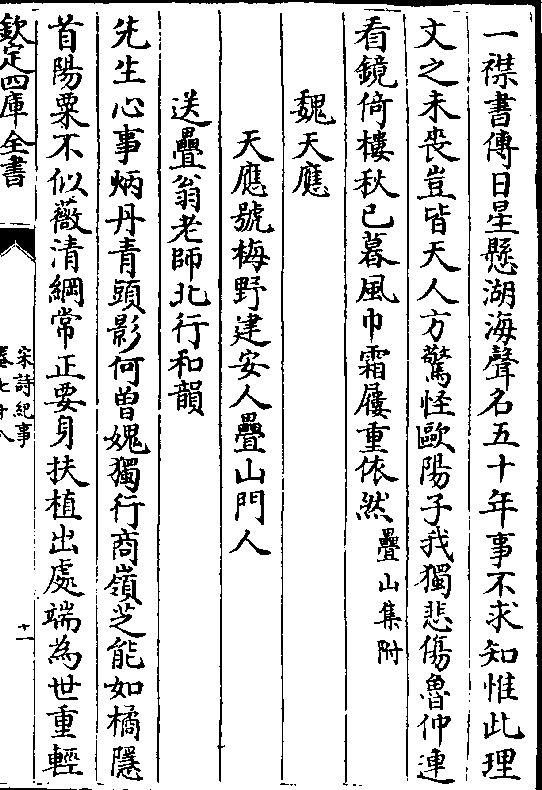 一襟書傳日星懸湖海聲名五十年事不求知惟此理
文之未喪豈皆天人方驚怪歐陽子我獨悲傷魯仲連
看鏡倚樓秋已暮風巾霜屨重依然疊山集附
魏天應
天應號梅野建安人疊山門人
送疊翁老師北行和韻
先生心事炳丹青頭影何曽媿獨行商嶺芝能如橘隱
首陽粟不似薇清綱常正要身扶植出處端為世重輕
欽定四庫全書
宋詩紀事
卷七十八
十一